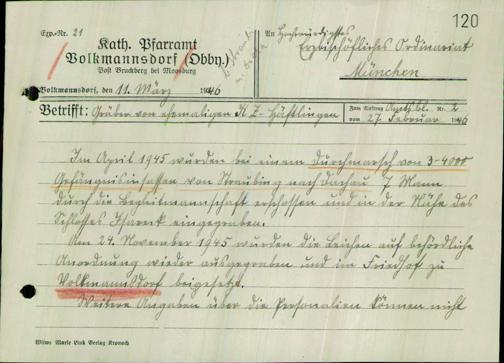 120
Exp.-Nr. 21
An Hochwürdigstes
Kath. Pfarramt
Erzbischöfliches Ordinariat
Volkmannsdorf (Obby.)
Post Bruckberg bei Moosburg
München
Volkmannsdorf, den 11. März 1946
Betrifft: Gräber von ehemaligen K Z-Häftlingen
Zum Auftrag Amtsbl. Nr. 2
vom 27. Februar 1946
Im April 1945 wurden bei einem Durchmarsch von 3-4000
Gefängnisinsassen von Straubing nach Dachau 7 Mann
durch die Begleitmannschaft erschossen und in der Nähe des
Schlosses Isareck eingegraben.
Am 24. November 1945 wurden die Leichen auf behördliche
Anordnung wieder ausgegraben und im Friedhof zu
Volkmannsdorf beigesetzt.
Weitere Angaben über die Personalien können nicht
Witwe Marie Link Verlag Kronach